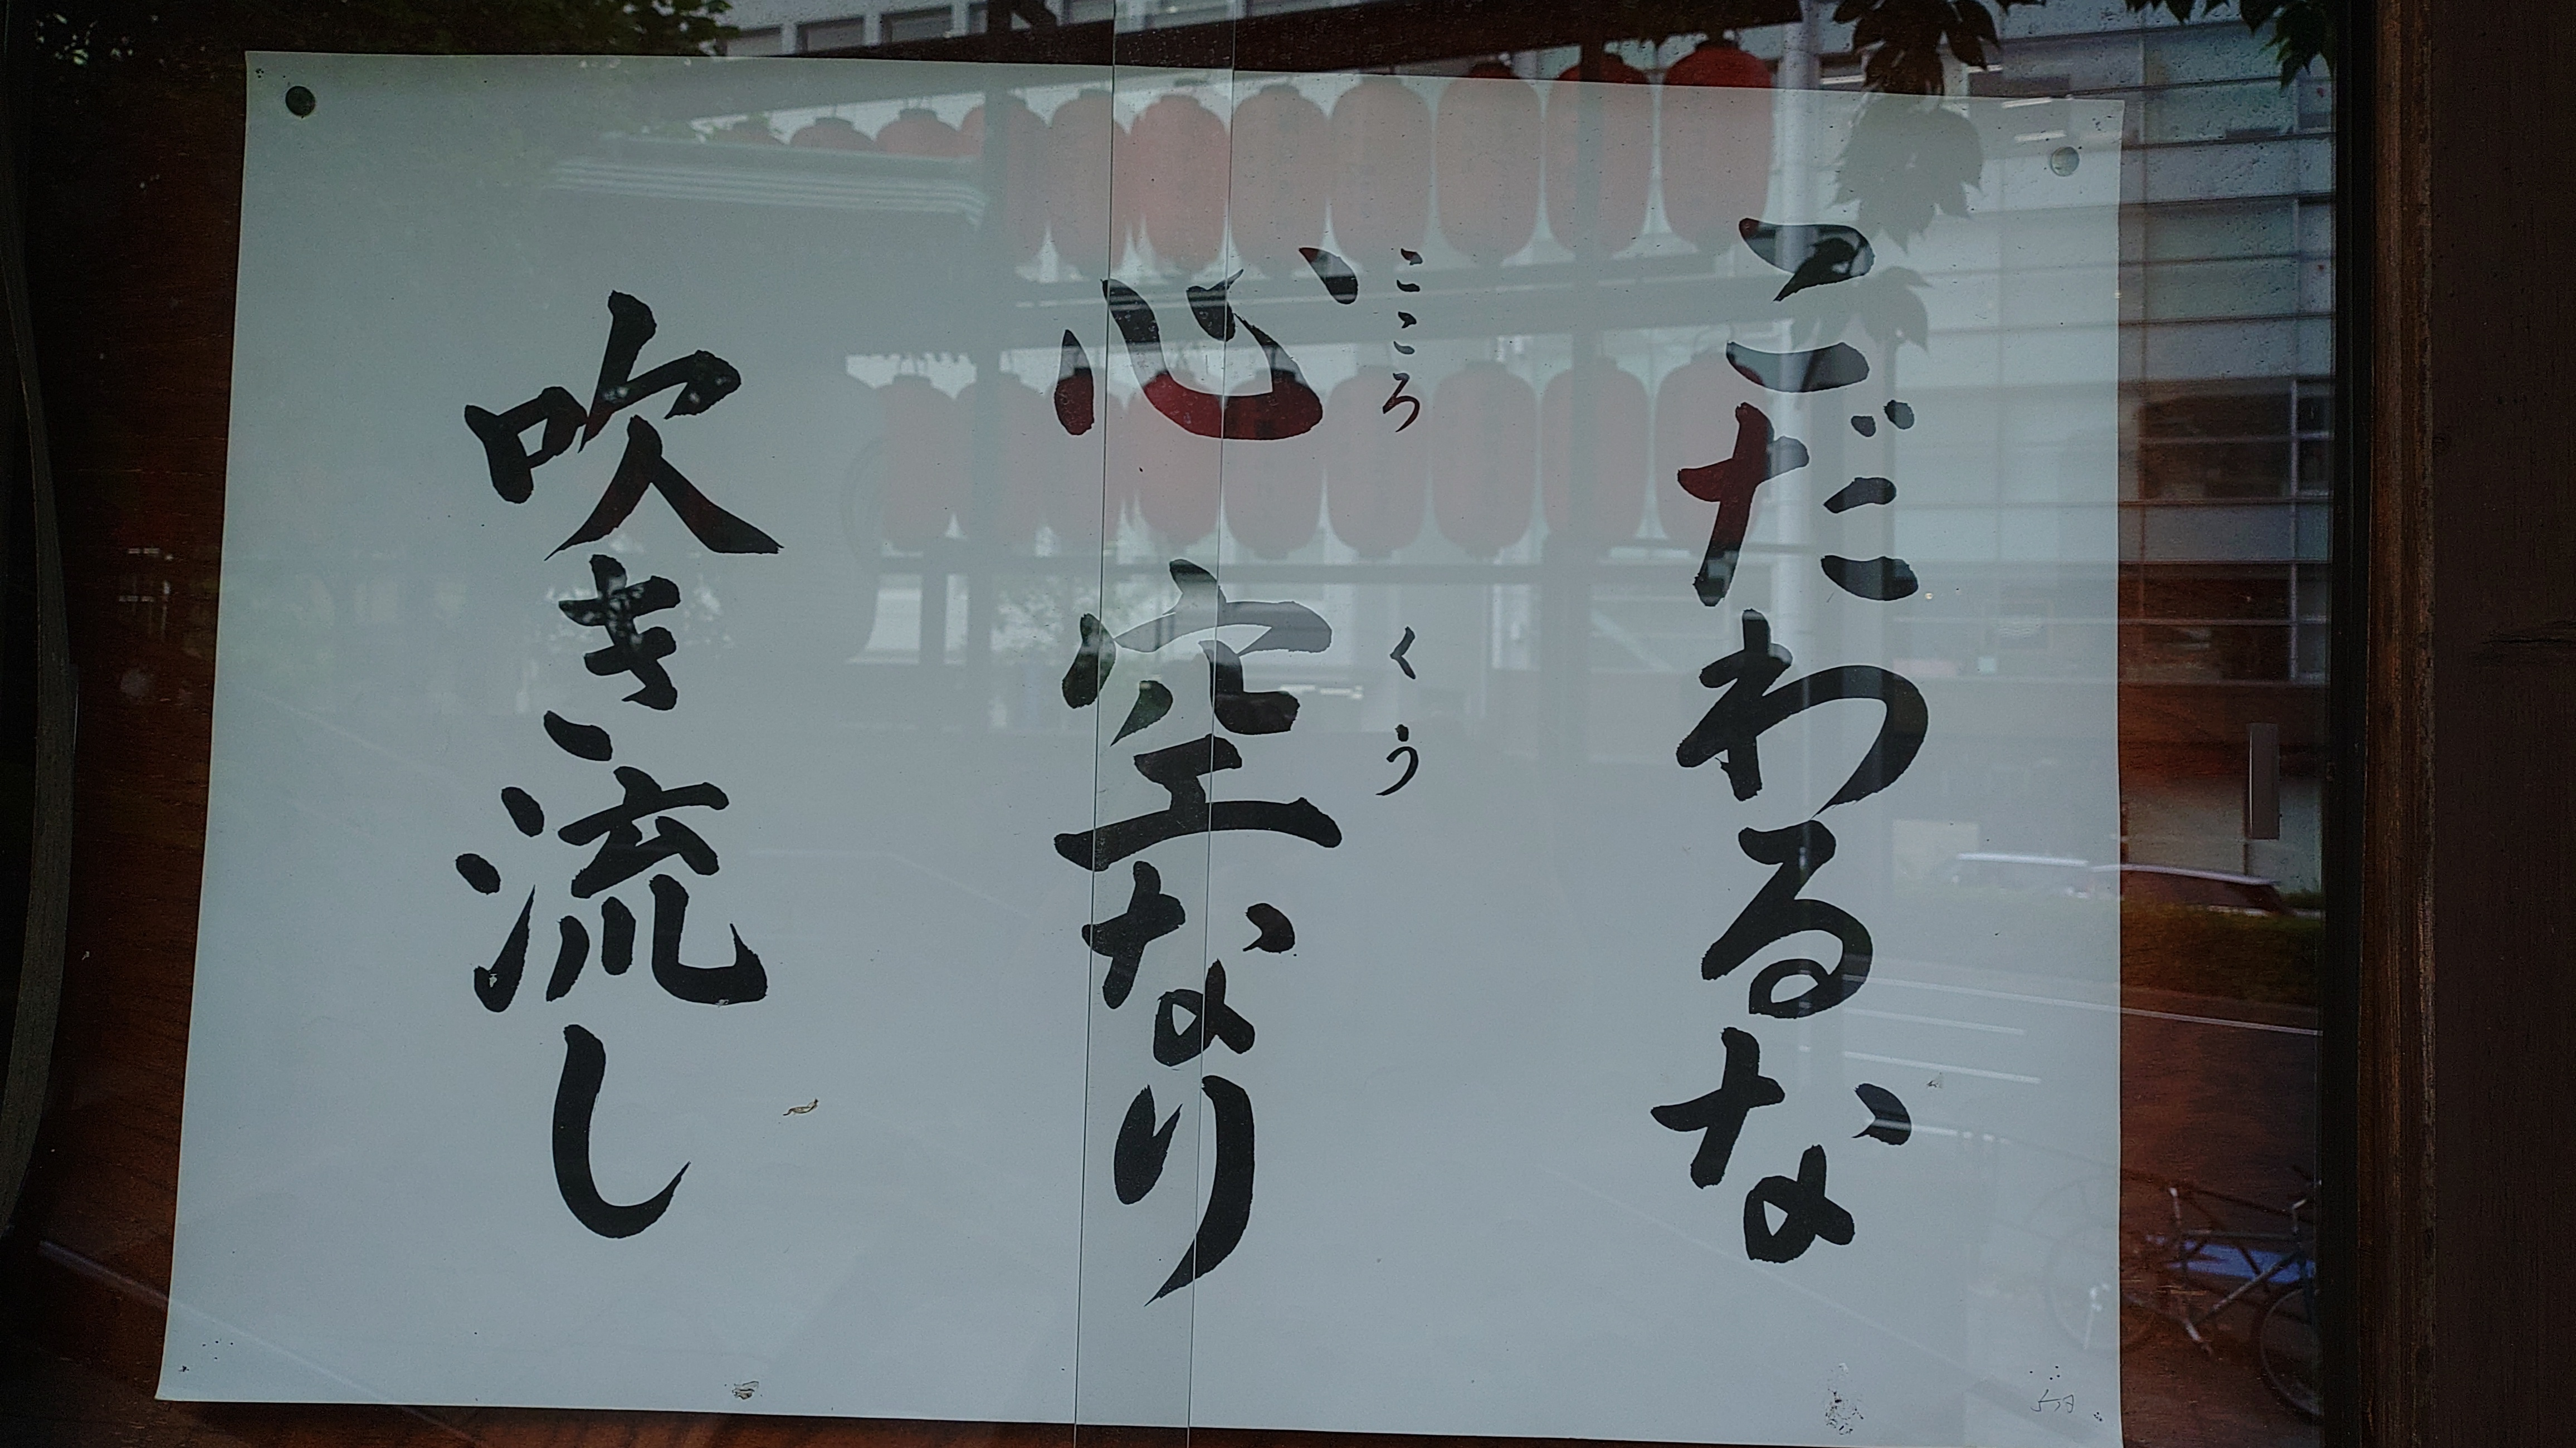 こだわるな
心空なり
こころ くう
吹き流し